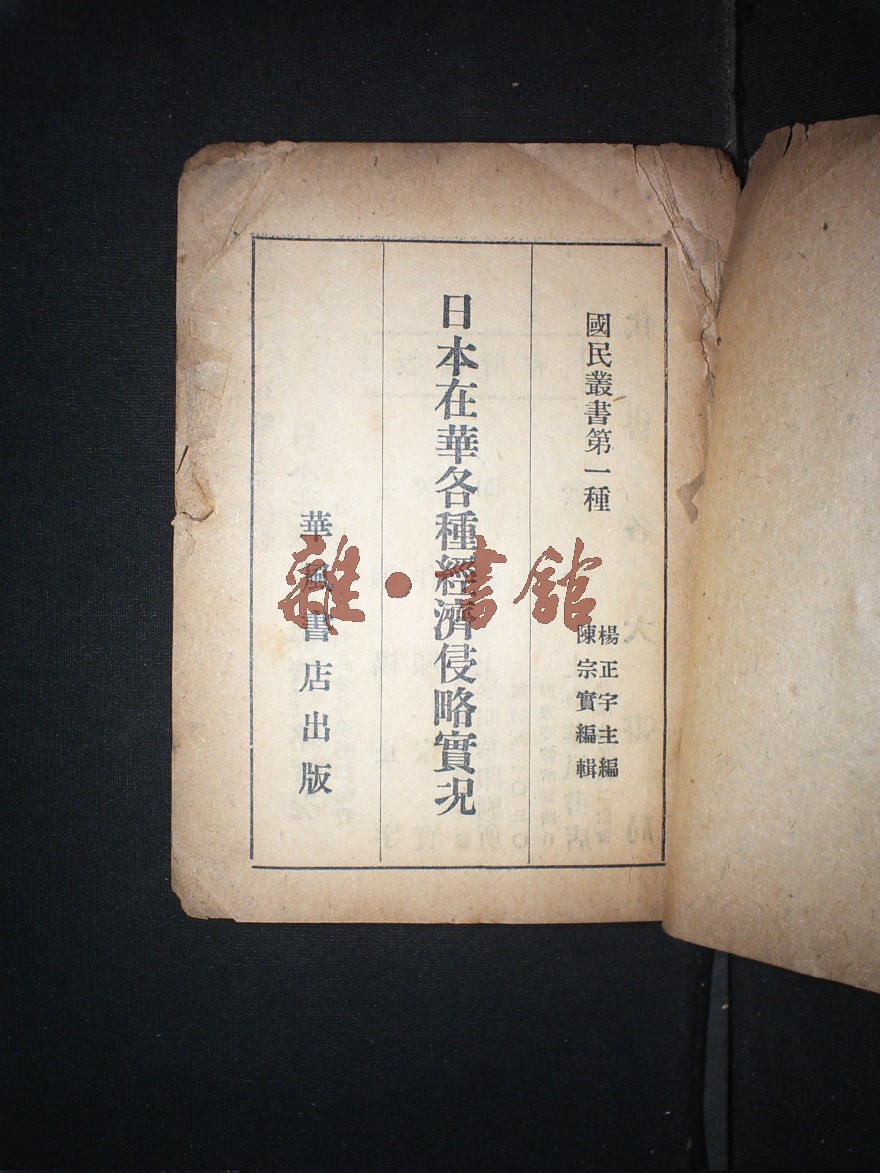 國民叢書第一種
楊正宇主編
陳宗實編輯
日本在華各種經濟侵略實况
華風書店出版
雜·書館